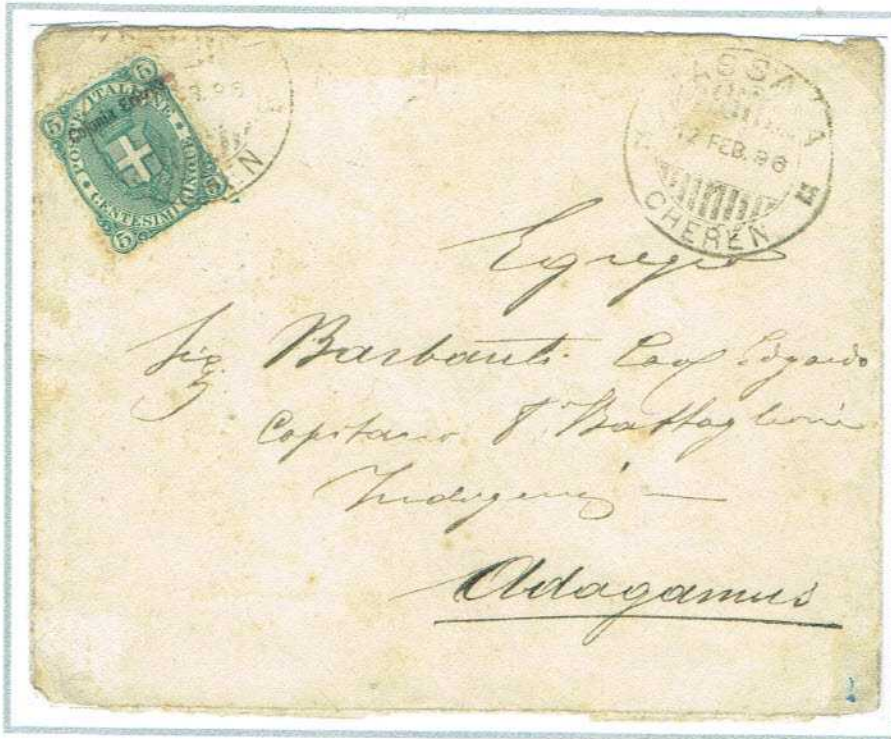 5 5 5 5
POSTE ITALIANE
Colonia Eritrea
CENTESIMI CINQUE
CHEREN
FEB. 96
CHEREN
Egregio
Sig. Barbanti Cav Edgardo
Capitano 8° Battaglione
Indigeni
Adagamus